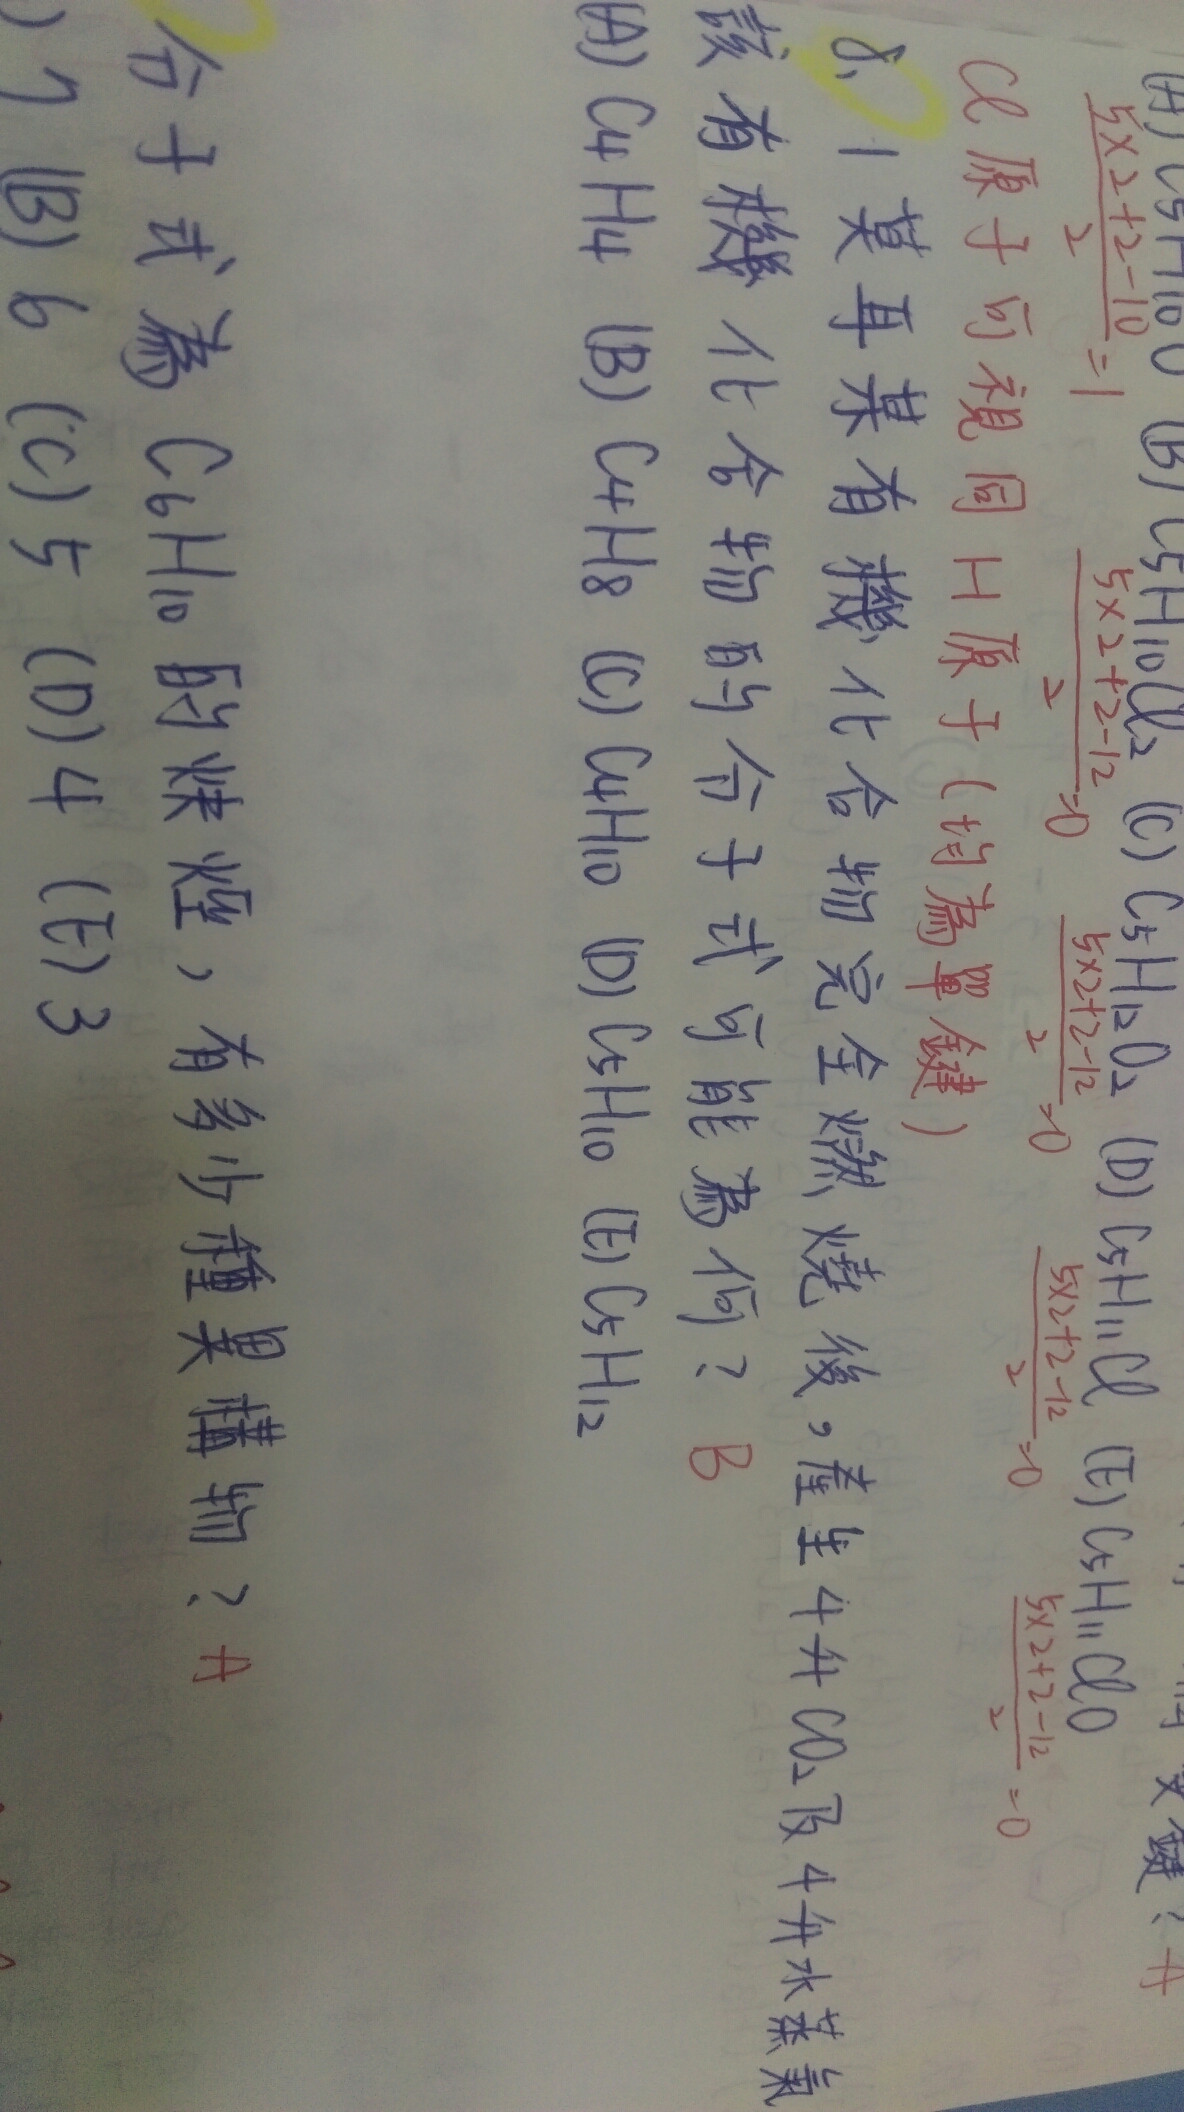 (A) C5H10O (B) C5H10Cl2 (C) C5H12O2 (D) C5H11Cl (E) C5H11ClO
5×2+2-10/2=1 5×2+2-12/2=0 5×2+2-12/2=0 5×2+2-12/2=0 5×2+2-12/2=0
Cl原子可視同H原子(均為單鍵)
8、1莫耳某有機化合物完全燃燒後，產生4升CO2及4升水蒸氣
該有機化合物的分子式可能為何？B
(A) C4H4 (B) C4H8 (C) C4H10 (D) C5H10 (E) C5H12
分子式為C6H10的炔烴，有多少種異構物？A
) 7 (B) 6 (C) 5 (D) 4 (E) 3